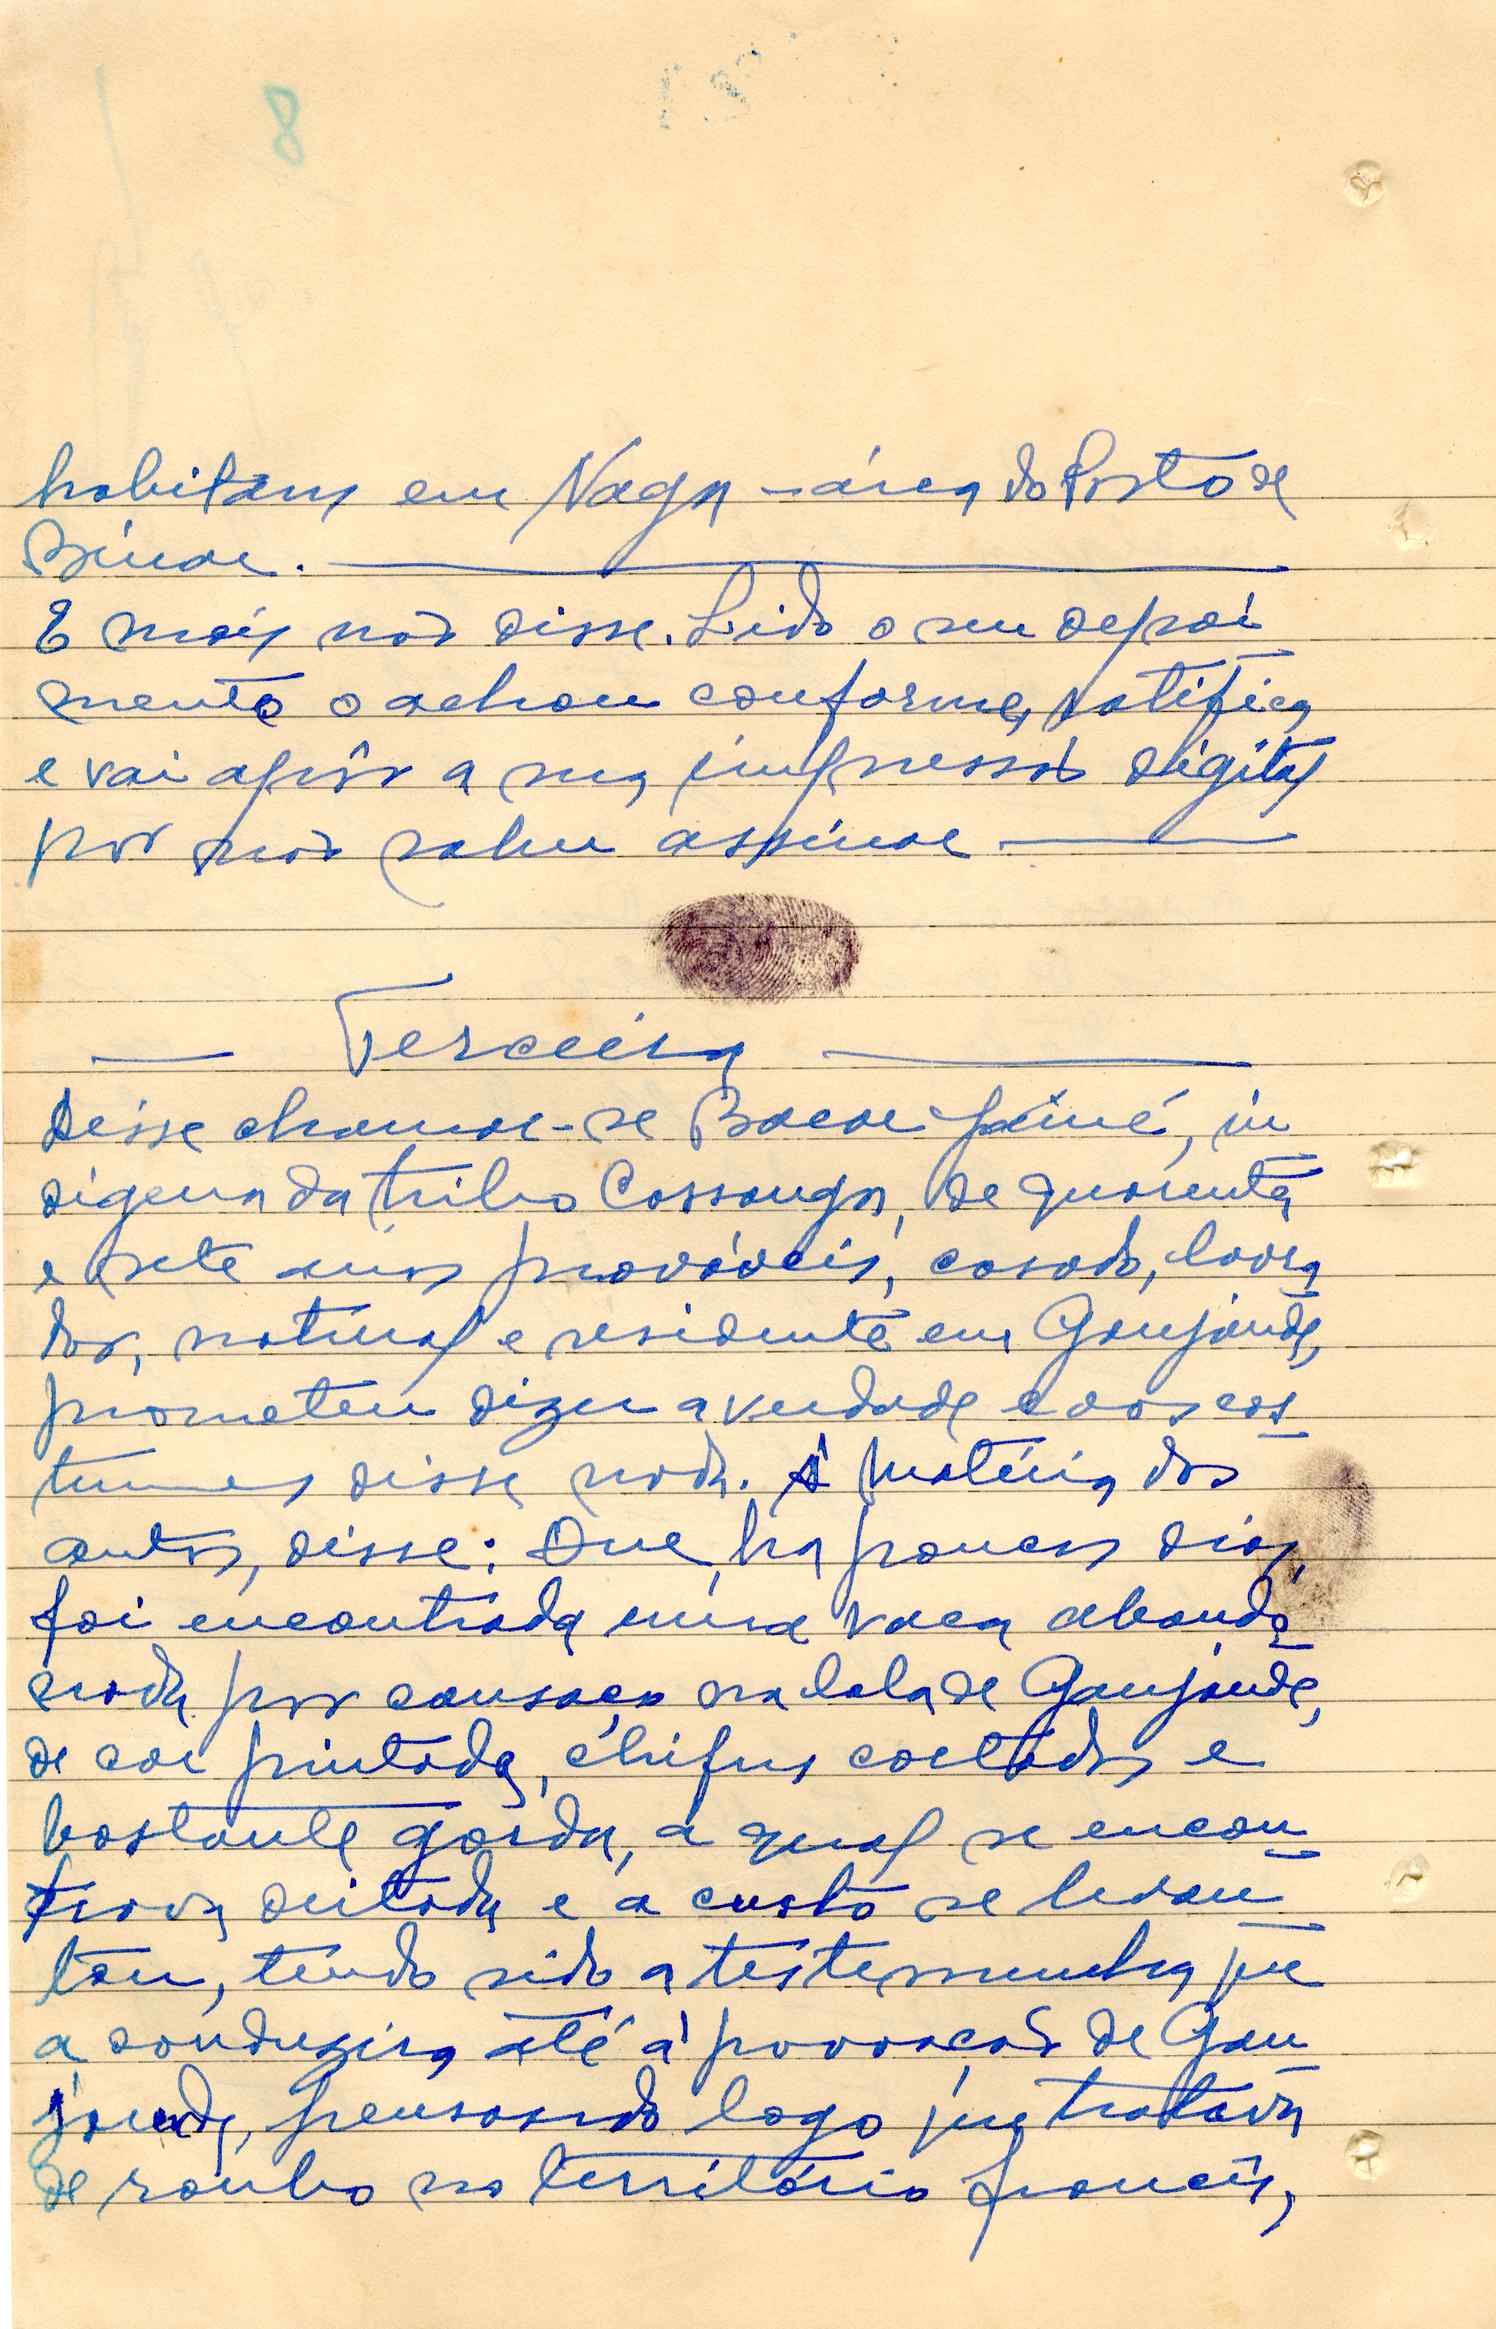 habitam em Naga - área do Posto de
Binar.
E mais não disse. Lido o seu depoi
mento o achou conforme, ratifica
e vai apôr a sua impressão digital
por não saber assinar
Terceira
Disse chamar-se Bacar Sané, in
digena da tribo Cassanga, de quarenta
e sete anos prováveis, casado, lavra
dor, natural e residente em Ganjandé,
prometeu dizer a verdade e aos cos
tumes disse nada. Á matéria dos
autos, disse: Que, ha poucos dias,
foi encontrada uma vaca abando
nada por cansaço na lala de Ganjandé,
de cor pintada, chifres cortados e
bastante gorda, a qual se encon
trava deitada e a custo se levan
tou, tendo sido a testemunha que
a conduzira até á povoação de Gan
jande, pensando logo que tratava
de roubo no território francês,